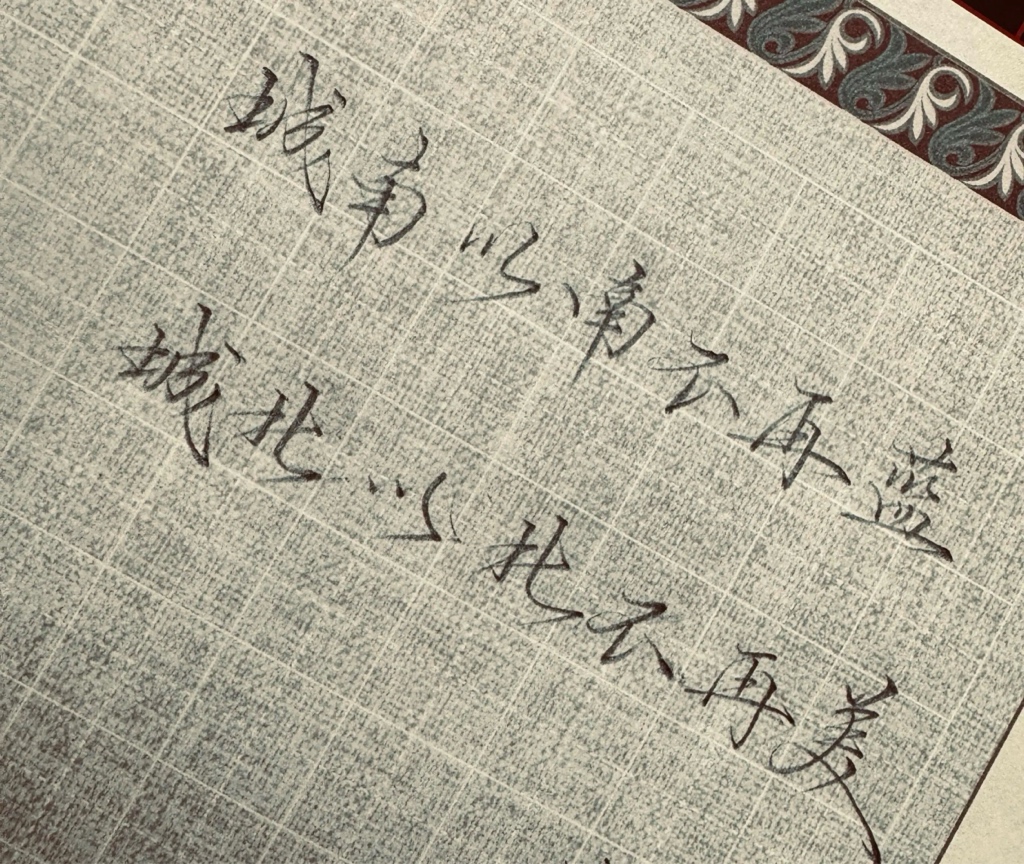 城南以南云再蓝
城北以北云再美